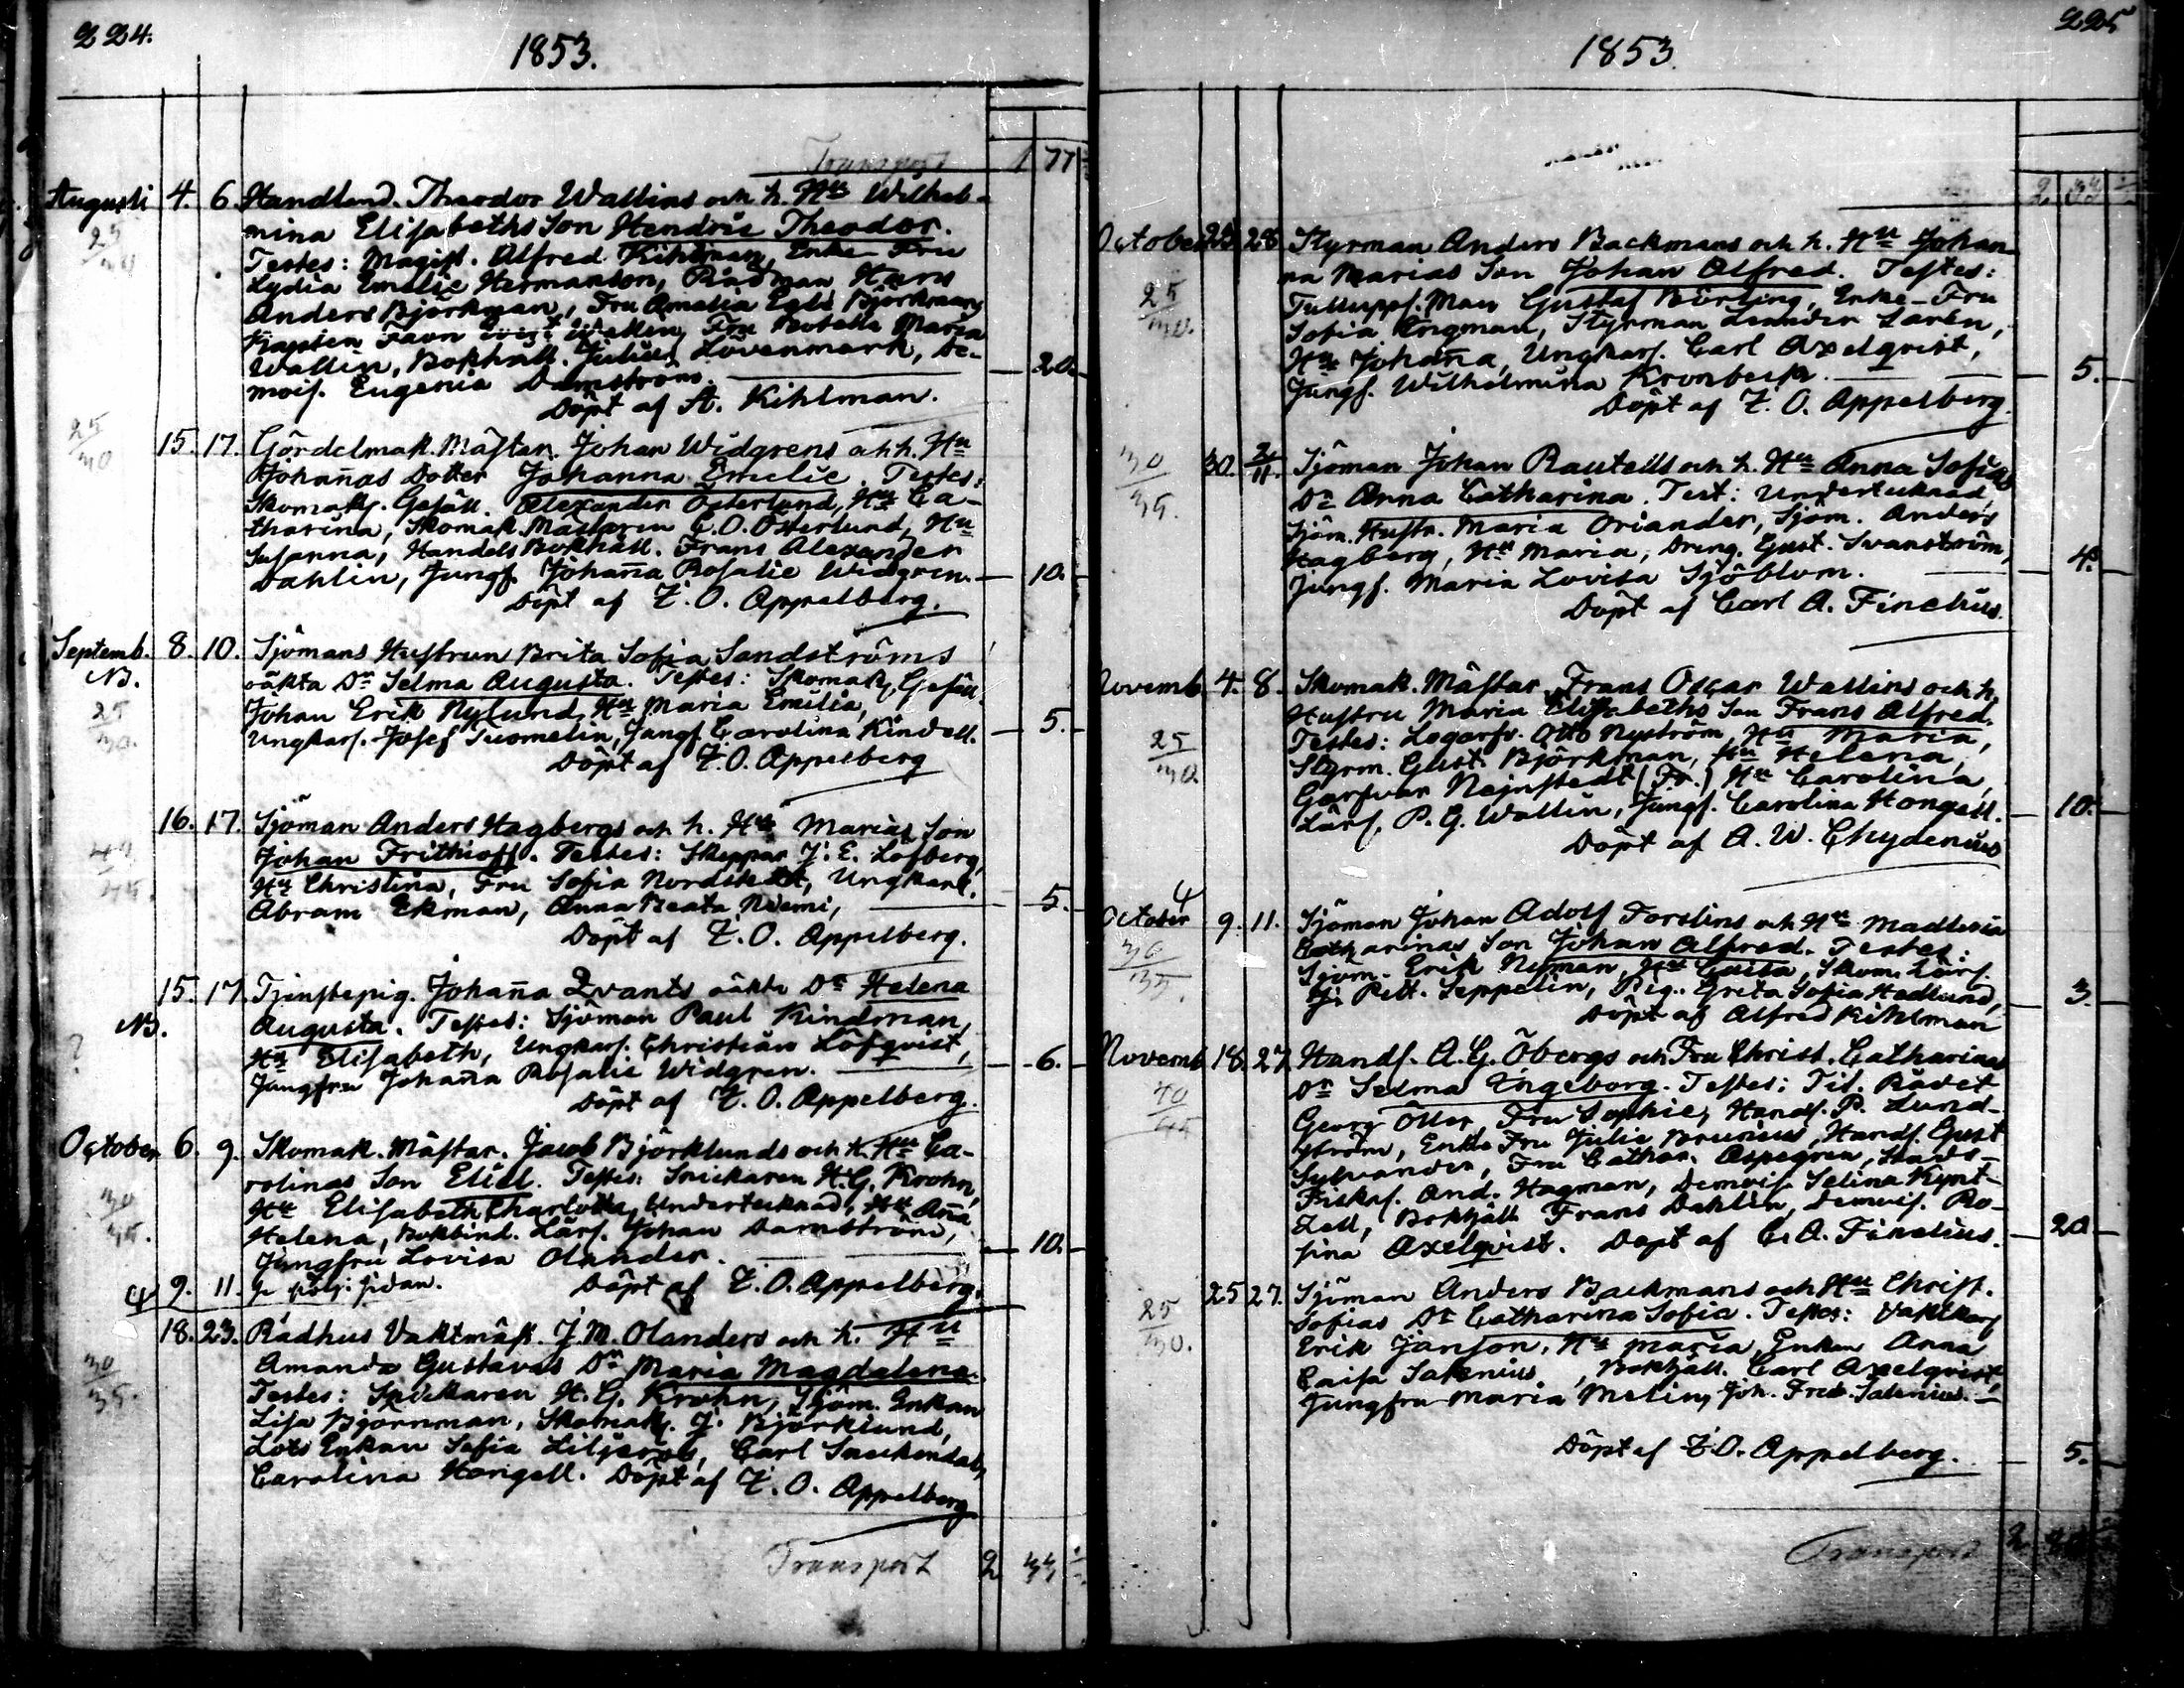 224.
1853.
Transport 1 77
Augusti 4. 6. Handland. Theodor Wallins och h. Hu Wilhel-
25/30 mina Elisabeths Son Hendric Theodor.
Testes: Magist. Alfred Kihlman, Enke Fru
Lydia Emelie Hermanson, Rådman Hans
Anders Björkman, Fru Amalia Björkman,
Kapten Wallin, Fru Maria
Wallin, Bokhåll. Julius Lövenmark, De-
mois. Eugenia Damström. 20.
Döpt af A. Kihlman.
25/30 15. 17. Gördelmak. Mästar. Johan Widgrens och h. Hu
Johan̄as Dotter Johanna Emelie. Testes:
Skomak. Gesäll. Alexander Österlund, Hu Ca-
tharina, Skomak. Mästaren C. O. Österlund, Hu
Susanna, Handels Bokhåll. Frans Alexander
Dahlin, Jungf. Johan̄a Rosalie Widgren. 10.
Döpt af Z. O. Appelberg.
Septemb. 8. 10. Sjömans Hustrun Brita Sofia Sandströms
NB. oäkta Dr Selma Augusta. Testes: Skomak. Gesäll.
25/30. Johan Erik Nylund, Hu Maria Emilia,
Ungkarl. Josef Tuomelin, Jungf. Carolina Kindell. 5.
Döpt af Z. O. Appelberg
16. 17. Sjöman Anders Hagbergs och h. Hus Marias Son
Johan Frithioff. Testes: Skeppar J. E. Löfberg,
Hu Christina, Fru Sofia Nordstedt, Ungkarl.
Abram Ekman, Anna Beata Niemi, 5.
Döpt af Z. O. Appelberg.
15. 17. Tjenstepig. Johan̄a Qvants oäkta Dr Helena
NB. Augusta. Testes: Sjöman Paul Kindman,
? Hu Elisabeth, Ungkarl. Christian Löfqvist,
Jungfru Johan̄a Rosalie Widgren. 6.
Döpt af Z. O. Appelberg.
October 6. 9. Skomak. Mästar. Jacob Björklunds och h. Hu Ca-
rolinas Son Eliel. Testes: Snickaren H. G. Krohn,
30/35. Hu Elisabeth Charlotta, Undertecknad, Hu An̄a
Helena, Bokbind. Lärl. Johan Damström,
Jungfru Lovisa Olander. 10.
9. 11. Se följ: sidan. Döpt af Z. O. Appelberg.
18. 23. Rådhus Vaktmäst. J. M. Olanders och h. Hu
Amanda Gustavas Dr Maria Magdalena.
30/35. Testes: Snickaren H. G. Krohn, Sjöm. Enkan
Lisa Björnman, Skomak. J. Björklund,
Lots Enkan Sofia Liljeroos, Carl
Carolina Hongell. Döpt af Z. O. Appelberg
Transport 2 33
225
1853
2. 33
October 23 28 Styrman Anders Backmans och h. Hu Johan-
na Marias Son Johan Alfred. Testes:
25/30. Tulluppf. Man Gustaf Börling, Enke-Fru
Sofia Engman, Styrman Leander Laren,
Hu Johan̄a, Ungkarl. Carl Axelqvist,
Jungf. Wilhelmina Kronbeck. 5.
Döpt af Z. O. Appelberg.
30/35. 30. 2/11. Sjöman Johan Rautells och h. Hu Anna Sofias
Dr Anna Catharina. Test: Undertecknad,
Sjöm. Hustr. Maria Oriander, Sjöm. Anders
Hagberg, Hu Maria, Dreng. Gust. Svanström,
Jungf. Maria Lovisa Sjöblom. 4.
Döpt af Carl A. Finelius.
Novemb. 4. 8. Skomak. Mästar. Frans Oscar Wallins och h.
Hustru Maria Elisabeths Son Frans Alfred.
25/30 Testes: Logarfv. Otto Nyström, Hu Maria,
Styrm. Gust. Björkman, Hu Helena,
Garfvar Nejnstedt (Fr.) Hu Carolina,
Lärl. P. G. Wallin, Jungf. Carolina Hongell. 10.
Döpt af A. W. Chydenius
October 9. 11. Sjöman Johan Adolf Forslins och Hu Madlena
Catharinas Son Johan Alfred. Testes:
30/35. Sjöm. Erik Nyman, Hu Caisa, Skom. Lärl.
Seppelin, Pig. Greta Sofia Hedlund, 3.
Döpt af Alfred Kihlman
Novemb 18. 27 Handl. A. G. Öbergs och Fru Christ. Catharinas
40/45 Dr Selma Ingeborg. Testes: Tit. Rådet
Georg Otter, Fru Sophie, Handl. P. Lund-
ström, Enke Fru Julie Brunius, Handl. Gust
Sylvander, Fru Cathar. Aspegren, Stads-
Fiskal. And. Hagman, Demois. Selina Kynt-
zell, Bokhåll. Frans Dahlin, Demois. Ro-
sina Axelqvist. Döpt af C. A. Finelius. 20
25 27. Sjöman Anders Backmans och Hu Christ.
Sofias Dr Catharina Sofia. Testes: Vaktkarl
25/30. Erik Janson, Hu Maria, Enkan Anna
Caisa Salenius, Bokhåll. Carl Axelqvist,
Jungfru Maria Melin, Joh. Fred. Salenius.
Döpt af Z. O. Appelberg. 5.
Transport 2